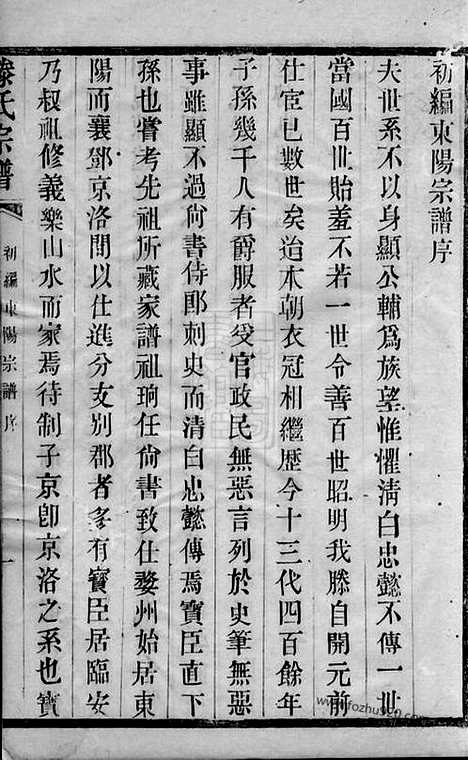 初編東陽宗譜序
夫世系不以身顯公輔爲族望惟懼清白忠懿不傳一世
當國百世貽羞不若一世令善百世昭明我滕自開元前
仕宦已數世矣迨本朝衣冠相繼歷今十三代四百餘年
子孫幾千人有爵服者受官政民無惡言列於史筆無惡
事雖顯不過尙書侍郎刺史而清白忠懿傳焉寶臣直下
孫也嘗考先祖所藏家譜祖珦任尙書致仕婺州始居東
陽而襄鄧京洛間以仕進分支別郡者多有寶臣居臨安
乃叔祖修義樂山水而家焉待制子京卽京洛之系也寶
滕氏宗譜
初編東陽宗譜序
一
www.fozhu920.com